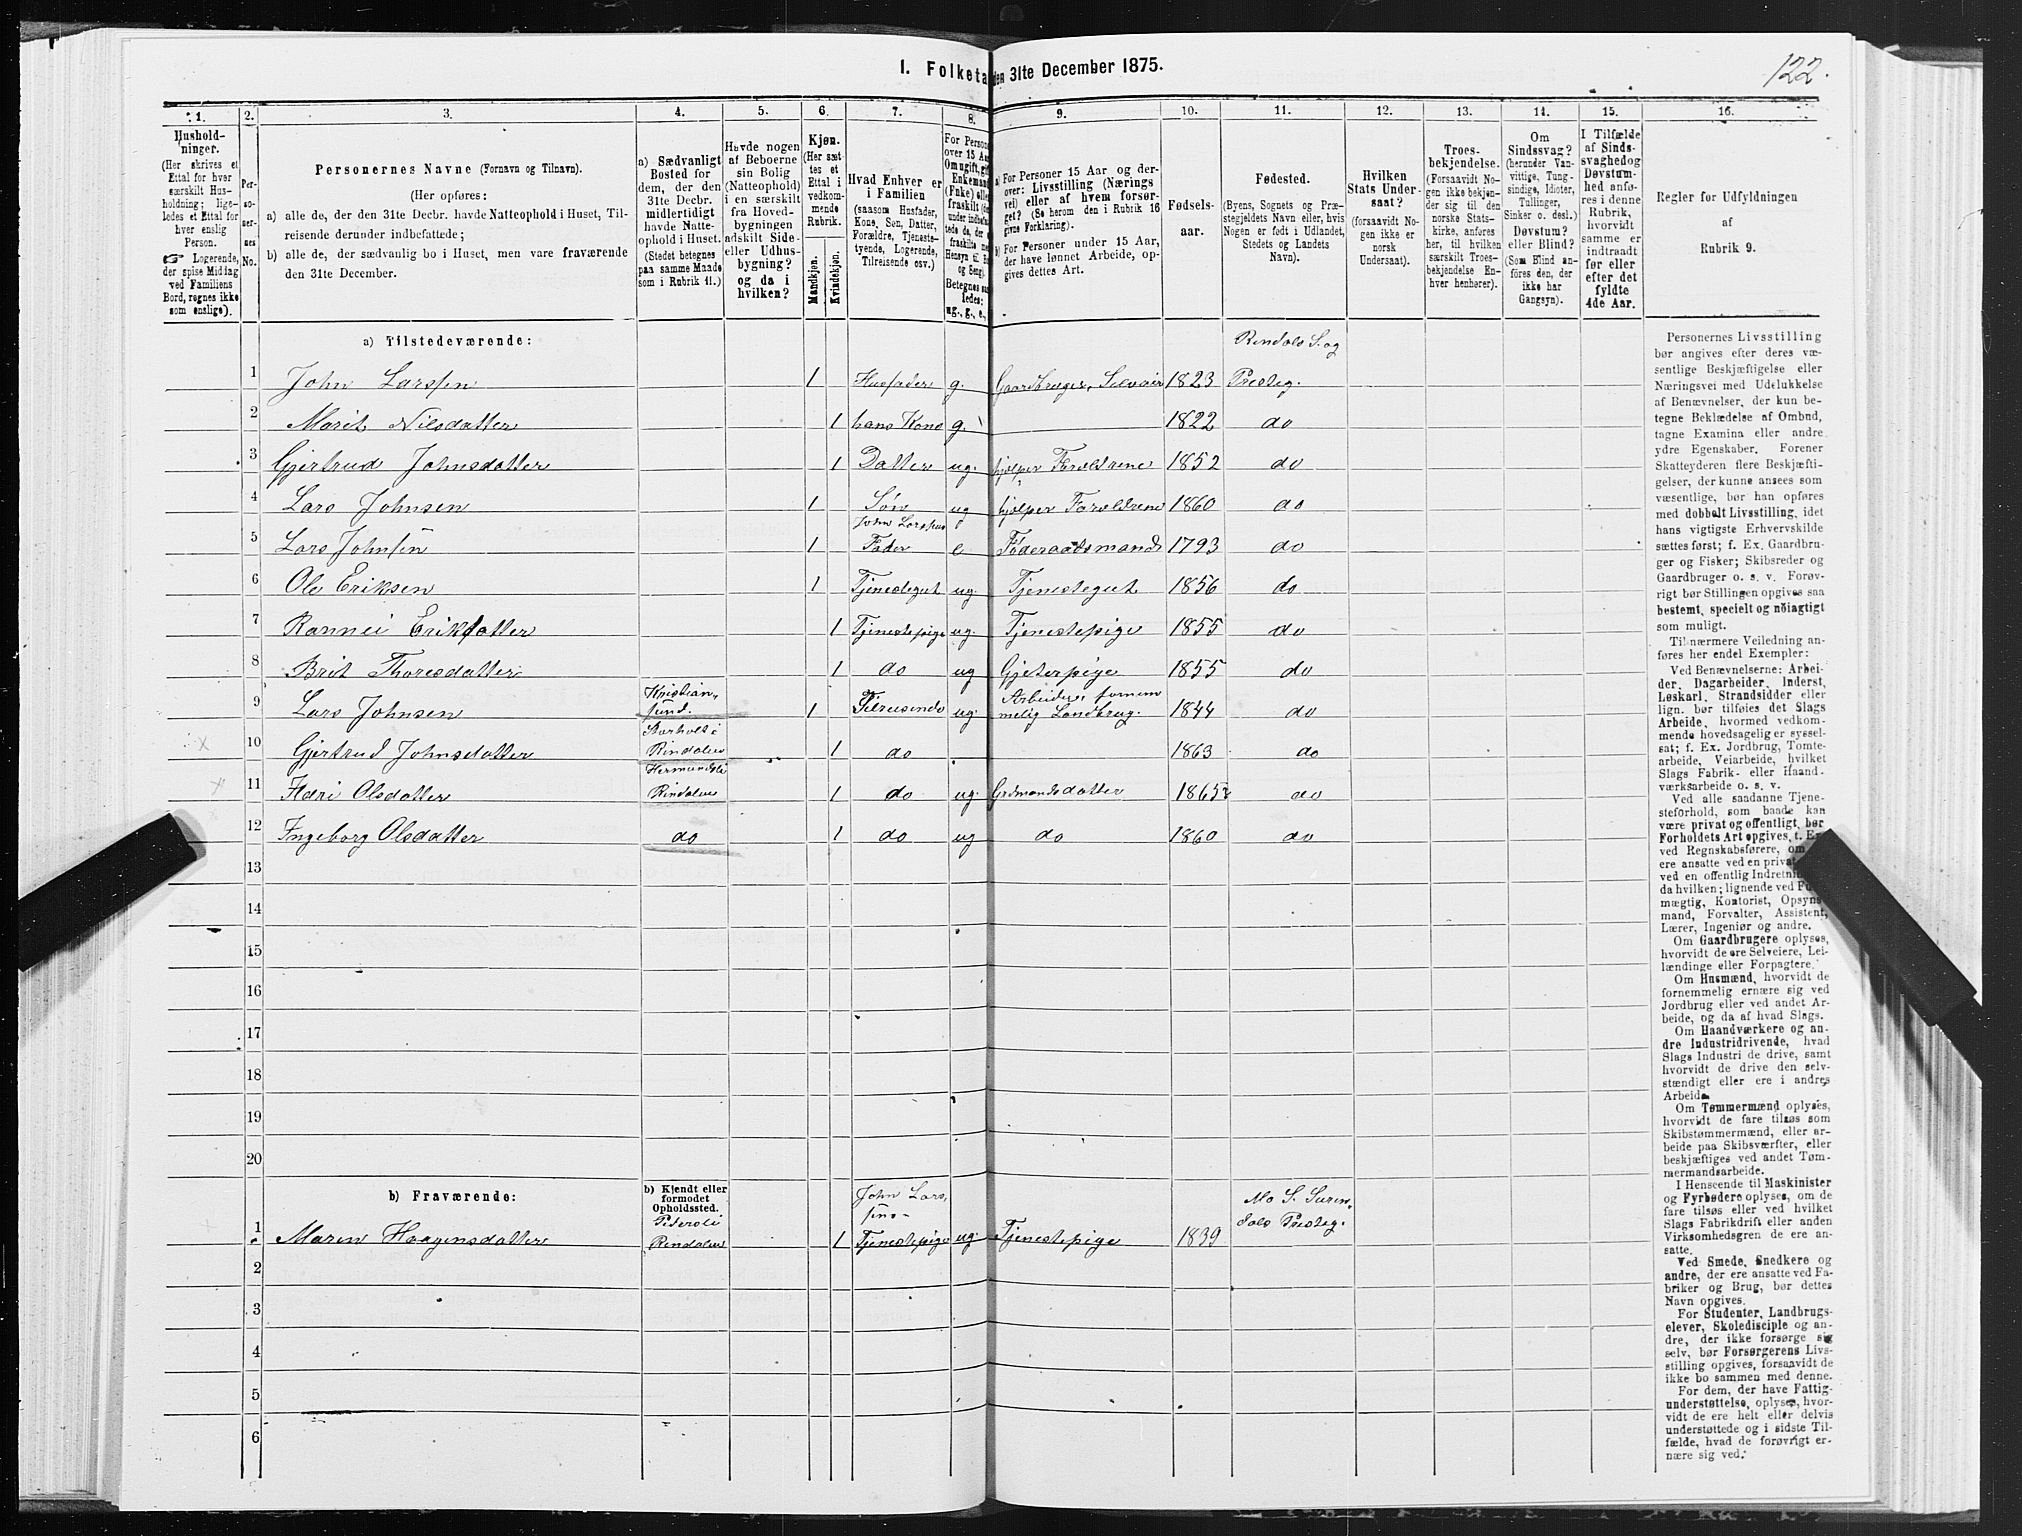 I. Folketa den 31te December 1875.
122.
1. 2. 3. 4. 5. 6. 7. 8. 9. 10. 11. 12. 13. 14. 15. 16.
Hushold-
ninger.
(Her skrives et
Ettal for hver
særskilt Hus-
holdning; lige-
ledes et Ettal for
hver enslig
Person.
☞ Logerende,
der spise Middag
ved Familiens
Bord, regnes ikke
som enslige).
Per-
so-
ner-
nes
No.
Personernes Navne (Fornavn og Tilnavn).
(Her opføres:
a) alle de, der den 31te Decbr. havde Natteophold i Huset, Til-
reisende derunder indbefattede;
b) alle de, der sædvanlig bo i Huset, men vare fraværende
den 31te December.
a) Sædvanligt
Bosted for
dem, der den
31te Decbr.
midlertidigt
havde Natte-
ophold i Huset.
(Stedet betegnes
paa samme Maade
som i Rubrik 11.)
Havde nogen
af Beboerne
sin Bolig
(Natteophold)
i en særskilt
fra Hoved-
bygningen
adskilt Side-
eller Udhus-
bygning?
og da i
hvilken?
Kjøn.
(Her sæt-
tes et
Ettal i
vedkom-
mende
Rubrik.
Mandkjøn.
Kvindekjøn.
Hvad Enhver er
i Familien
(saasom Husfader,
Kone, Søn, Datter,
Forældre, Tjeneste-
tyende, Logerende,
Tilreisende osv.)
For Person
over 15 Aa
Om ugift, gif
Enkemand
(Fnke) elle
fraskilt (de
under indbefat
tede de, der e
fraskilte me
Hensyn til Bo
og Seng).
Betegnes saa
ledes:
ug., g., e.,
a) For Personer 15 Aar og der-
over: Livsstilling (Nærings
vei) eller af hvem forsør-
get? (Se herom den i Rubrik 16
givne Forklaring).
b) For Personer under 15 Aar,
der have lønnet Arbeide, op-
gives dettes Art.
Fødsels-
aar.
Fødested.
(Byens, Sognets og Præ-
stegjeldets Navn eller, hvis
Nogen er født i Udlandet,
Stedets og Landets
Navn).
Hvilken
Stats Under-
saat?
(forsaavidt No-
gen ikke er
norsk
Undersaat).
Troes-
bekjendelse.
(Forsaavidt No-
gen ikke bekjen-
der sig til den
norske Stats-
kirke, anføres
her, til hvilken
særskilt Troes-
bekjendelse En-
hver henhører).
Om
Sindssvag?
(herunder Van-
vittige, Tung-
sindige, Idioter,
Tullinger,
Sinker o. desl.)
Døvstum?
eller Blind?
(Som Blind an-
føres den, der
ikke har
Gangsyn).
I Tilfælde
af Sinds-
svaghed og
Døvstum-
hed anfø-
res i denne
Rubrik,
hvorvidt
samme er
indtraadt
før eller
efter det
fyldte
4de Aar.
Regler for Udfyldningen
af
Rubrik 9.
a) Tilstedeværende:
Rendals S. og
1 John Larssen 1 Husfader g. Gaardbruger, Selveier 1823 Presteg.
2 Marit Nilsdatter 1 hans Kone g. 1822 do
3 Gjertrud Johnsdatter 1 Datter ug. hjelper Forældrene 1852 do
4 Lars Johnsen 1 Søn ug hjelper Forældrene 1860 do
John Larssens
5 Lars Johnsen 1 Fader e Føderaadsmand 1793 do
6 Ole Eriksen 1 Tjenestegut ug. Tjenestegut 1856 do
7 Rannei Eriksdatter 1 Tjenestepige ug. Tjenestepige 1855 do
8 Brit Thoresdatter 1 do ug Gjeterpige 1855 do
Kristian- Arbeider, fornem
9 Lars Johnsen sund. 1 Tilreisende ug. melig Landbrug. 1844 do
10 Gjertrud Johnsdatter Rindalen 1 do 1863 do
11 Olsdatter Rindalen 1 do ug. 1865 do
12 Ingeborg Olsdatter do 1 do ug do 1860 do
13
14
15
16
17
18
19
20
b) Fraværende:
b) Kjendt eller
formodet
Opholdssted.
John Lars,
sens
Mo S. Suren,
dals Presteg.
Pedersli
1 Maren Haagensdatter Rindalen 1 Tjenestepige ug. Tjenestepige 1839
2
3
4
5
6
Personernes Livsstilling
bør angives efter deres væ-
sentlige Beskjæftigelse eller
Næringsvei med Udelukkelse
af Benævnelser, der kun be-
tegne Beklædelse af Ombud,
tagne Examina eller andre
ydre Egenskaber. Forener
Skatteyderen flere Beskjæfti-
gelser, der kunne ansees som
væsentlige, bør han opføres
med dobbelt Livsstilling, idet
hans vigtigste Erhvervskilde
sættes først; f. Ex. Gaardbru-
ger og Fisker; Skibsreder og
Gaardbruger o. s. v. Forøv-
rigt bør Stillingen opgives saa
bestemt, specielt og nøiagtigt
som muligt.
Til nærmere Veiledning an-
føres her endel Exempler:
Ved Benævnelserne: Arbei-
der, Dagarbeider, Inderst,
Løskarl, Strandsidder eller
lign. bør tilføies det Slags
Arbeide, hvormed vedkom-
mende hovedsagelig er syssel-
sat; f. Ex. Jordbrug, Tomte-
arbeide, Veiarbeide, hvilket
Slags Fabrik- eller Haand-
værksarbeide o. s. v.
Ved alle saadanne Tjene-
steforhold, som baade kan
være privat og offentligt, bør
Forholdets Art opgives, t. Ex.
ved Regnskabsførere, om
ere ansatte ved en privat
ved en offentlig Indretnin
da hvilken; lignende ved Fu
mægtig, Kontorist, Opsyns
mand, Forvalter, Assistent,
Lærer, Ingeniør og andre.
Om Gaardbrugere oplyses,
hvorvidt de ere Selveiere, Lei-
lændinge eller Forpagtere.
Om Husmænd, hvorvidt de
fornemmelig ernære sig ved
Jordbrug eller ved andet Ar-
beide, og da af hvad Slags.
Om Haandværkere og an-
dre Industridrivende, hvad
Slags Industri de drive, samt
hvorvidt de drive den selv-
stændigt eller ere i andres
Arbeide.
Om Tømmermænd oplyses,
hvorvidt de fare tilsøs som
Skibstømmermænd, eller ar-
beide paa Skibsværfter, eller
beskjæftiges ved andet Tøm-
mermandsarbeide.
I Henseende til Maskinister
og Fyrbødere oplyses, om de
fare tilsøs eller ved hvilket
Slags Fabrikdrift eller anden
Virksomhedsgren de ere an-
satte.
Ved Smede, Snedkere og
andre, der ere ansatte ved Fa-
briker og Brug, bør dettes
Navn opgives.
For Studenter, Landbrugs-
elever, Skoledisciple og an-
dre, der ikke forsørge sig
selv, bør Forsørgerens Livs-
stilling opgives, forsaavidt de
ikke bo sammen med denne.
For dem, der have Fattig-
understøttelse, oplyses, hvor-
vidt de ere helt eller delvis
understøttede og i sidste Til-
fælde, hvad de forøvrigt er-
nære sig ved.